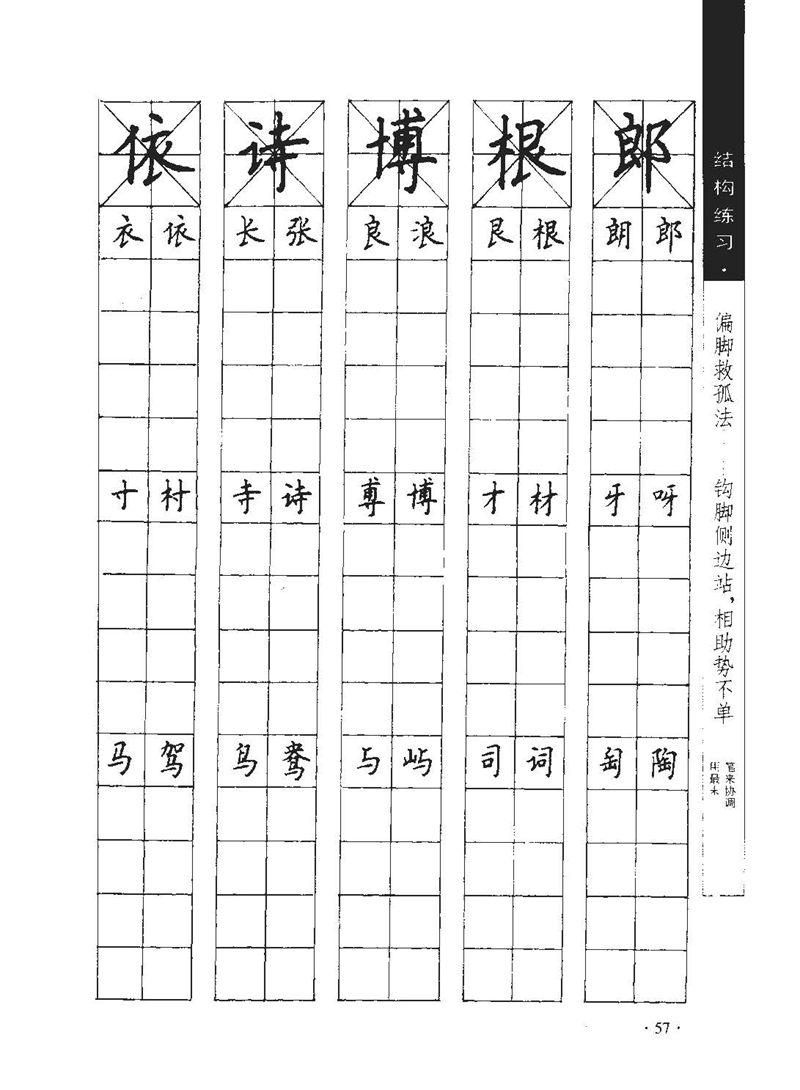 结构练习·
偏脚救孤法……钩脚侧边站，相助势不单
用最末
笔来协调
依 诗 博 根 郎
衣 依 长 张 良 浪 艮 根 朗 郎
寸 村 寺 诗 尃 博 才 材 牙 呀
马 驾 鸟 与 屿 司 词 匋 陶
·57·